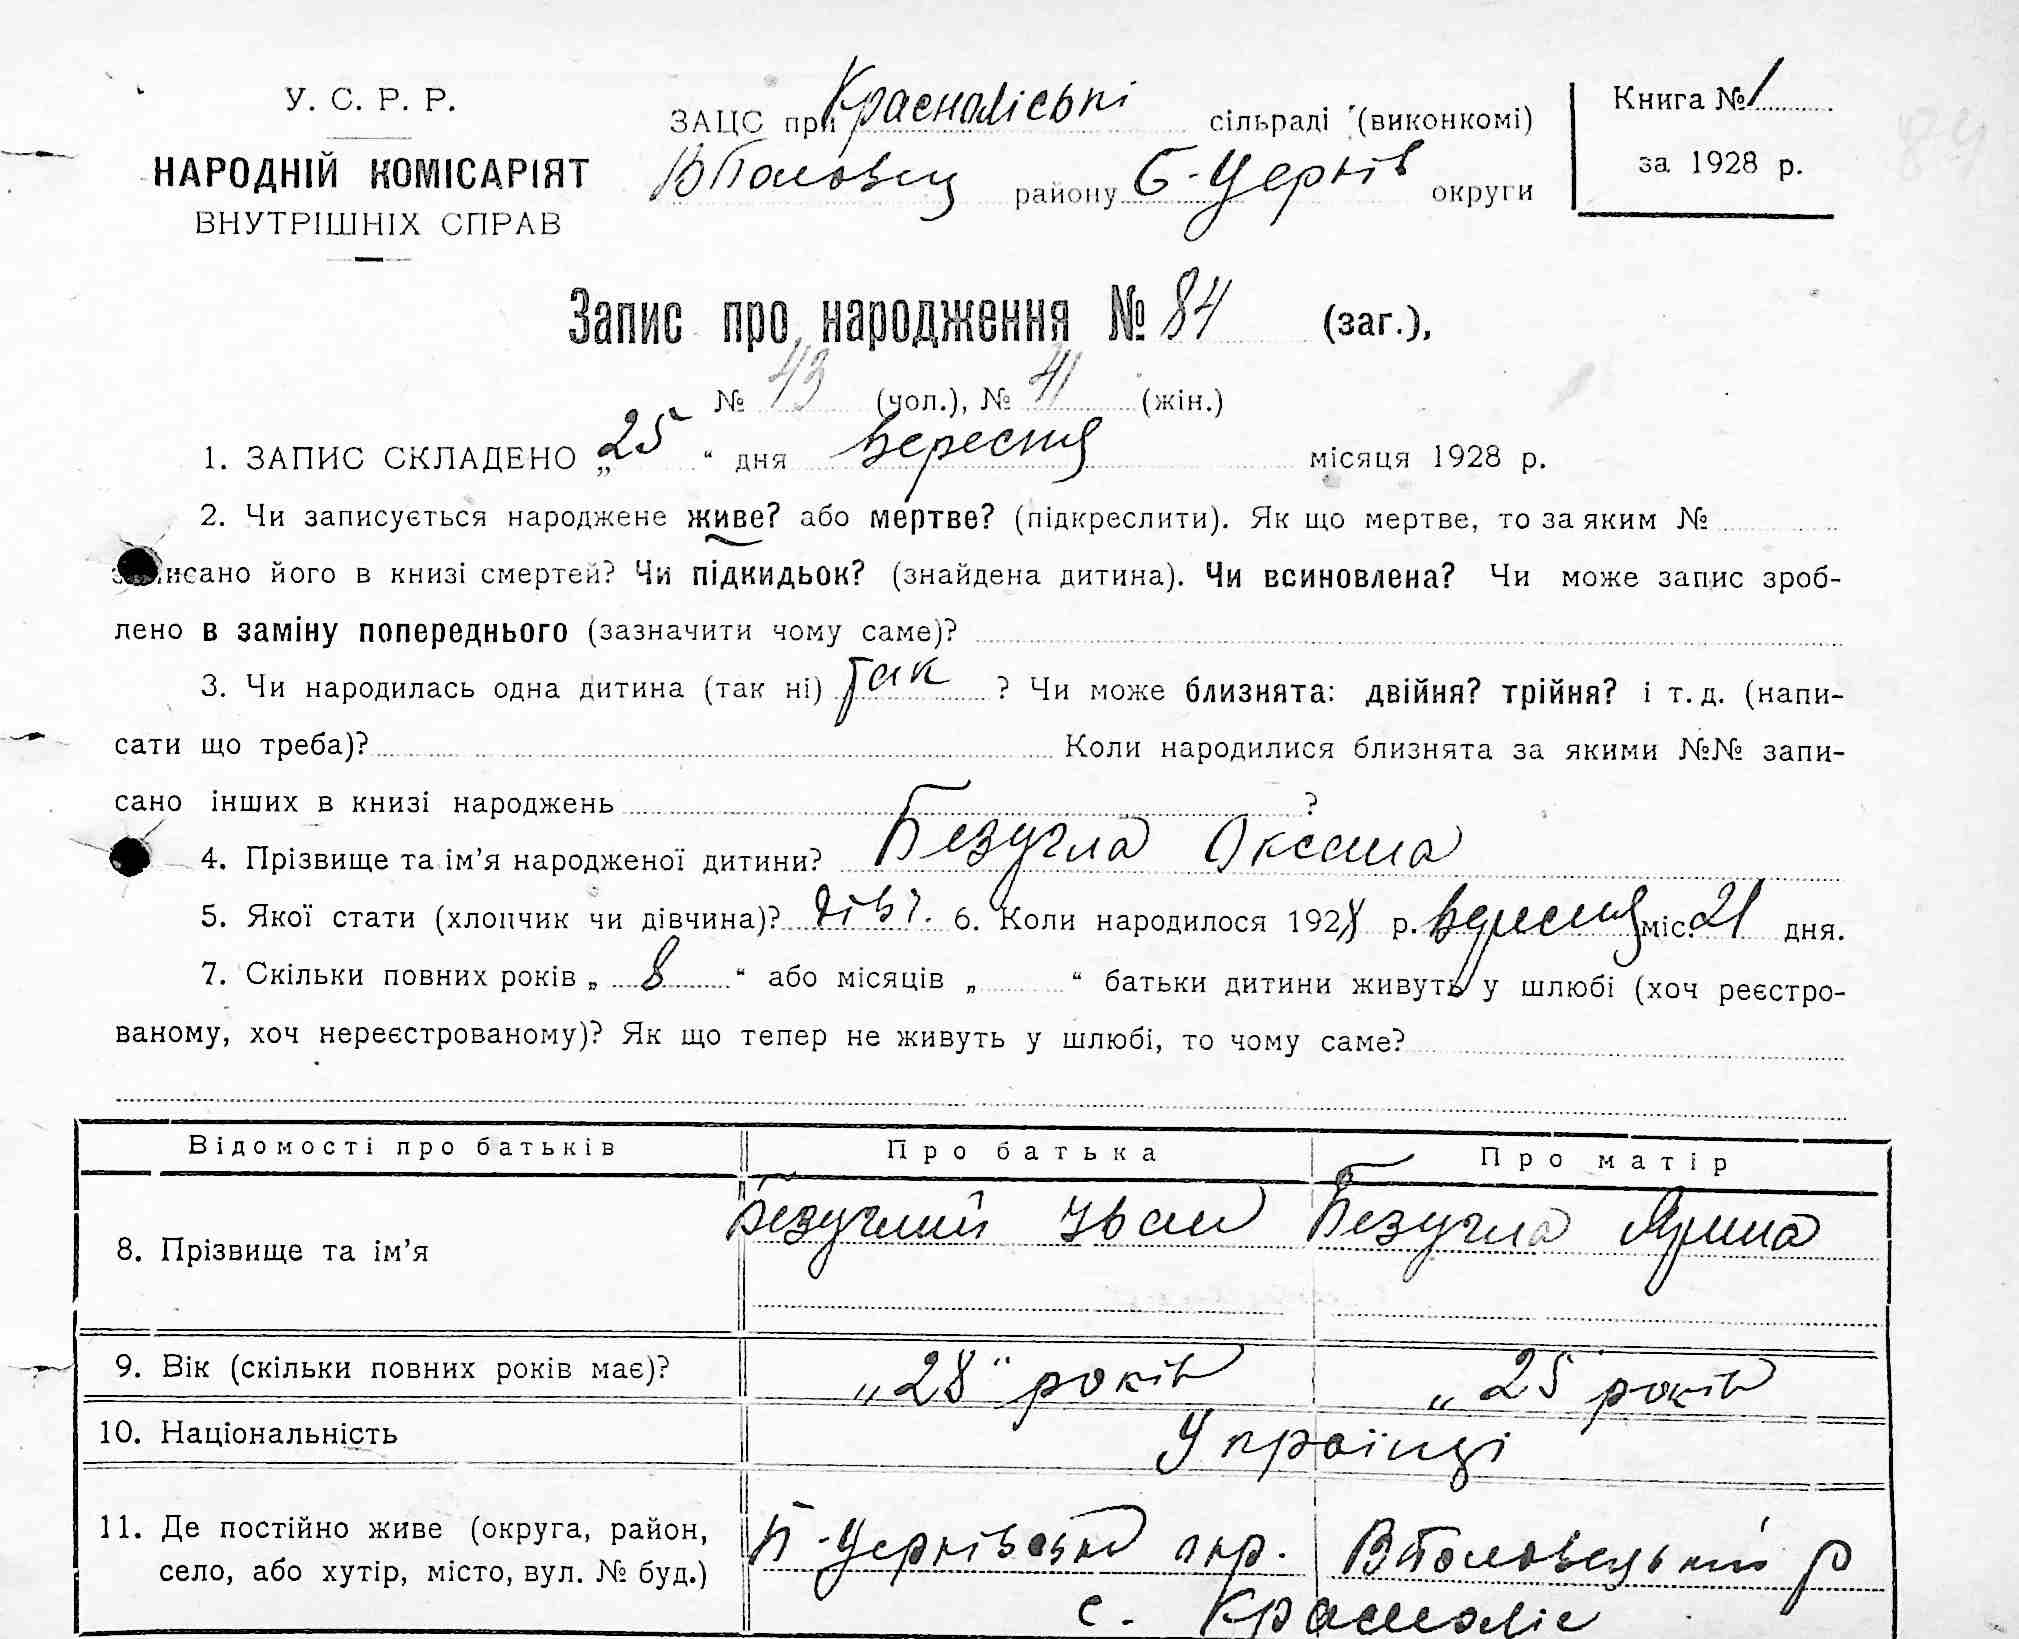 У. С. Р. Р.
НАРОДНІЙ КОМІСАРІЯТ
ВНУТРІШНІХ СПРАВ
ЗАЦС при Красноліські сільраді (виконкомі)
ВПоловец району Б-Церків округи
Книга № 1
за 1928 р.
84
Запис про народження № 84 (заг.),
№ 43 (чол.), № 41 (жін.)
1. ЗАПИС СКЛАДЕНО „25“ дня Вересня місяця 1928 р.
2. Чи записується народжене живе? або мертве? (підкреслити). Як що мертве, то за яким №
записано його в книзі смертей? Чи підкидьок? (знайдена дитина). Чи всиновлена? Чи може запис зроб-
лено в заміну попереднього (зазначити чому саме)?
3. Чи народилась одна дитина (так ні) Так ? Чи може близнята: двійня? трійня? і т. д. (напи-
сати що треба)? Коли народилися близнята за якими №№ запи-
сано інших в книзі народжень ?
4. Прізвище та ім’я народженої дитини? Безугла Оксана
5. Якої стати (хлопчик чи дівчина)? дівч. 6. Коли народилося 1928 р. Вересня міс. 21 дня.
7. Скільки повних років „ 8 “ або місяців „ “ батьки дитини живуть у шлюбі (хоч реєстро-
ваному, хоч нереєстрованому)? Як що тепер не живуть у шлюбі, то чому саме?
Відомості про батьків Про батька Про матір
8. Прізвище та ім’я Безуглий Іван Безугла Ярина
9. Вік (скільки повних років має)? „28“ років „25 років
10. Національність Українці
11. Де постійно живе (округа, район, Б-Церківська окр. ВПоловецький р
село, або хутір, місто, вул. № буд.) с. Красноліс